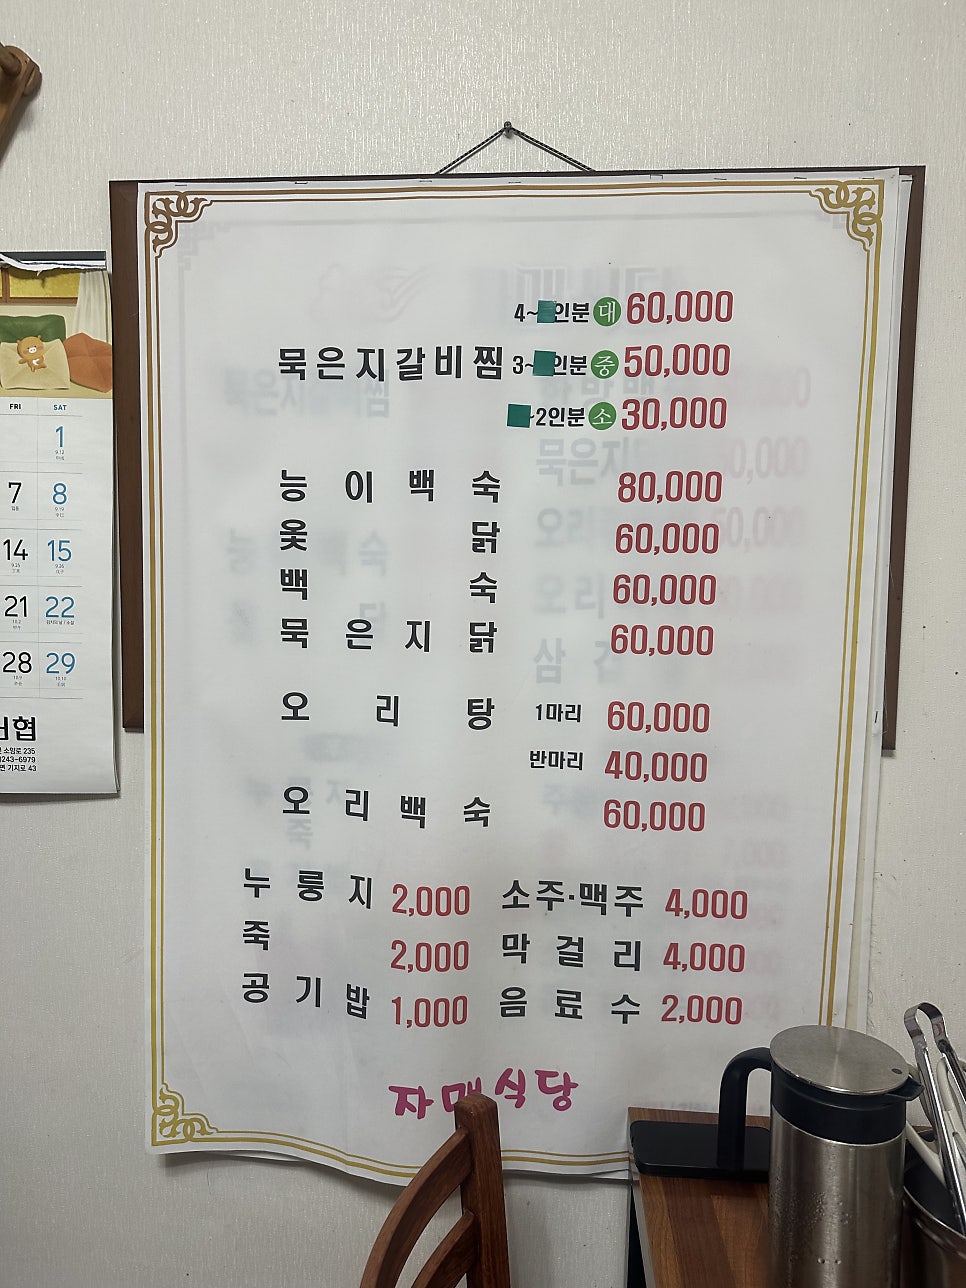 4~ 인분 대 60,000
묵은지갈비찜 3~ 인분 중 50,000
~2인분 소 30,000
능이백숙 80,000
옻닭 60,000
백숙 60,000
묵은지닭 60,000
오리탕 1마리 60,000
반마리 40,000
오리백숙 60,000
누룽지 2,000 소주·맥주 4,000
죽 2,000 막걸리 4,000
공기밥 1,000 음료수 2,000
자매식당
FRI SAT
1
7 8
14 15
21 22
28 29
소암로 235
)243-6979
면 기지로 43